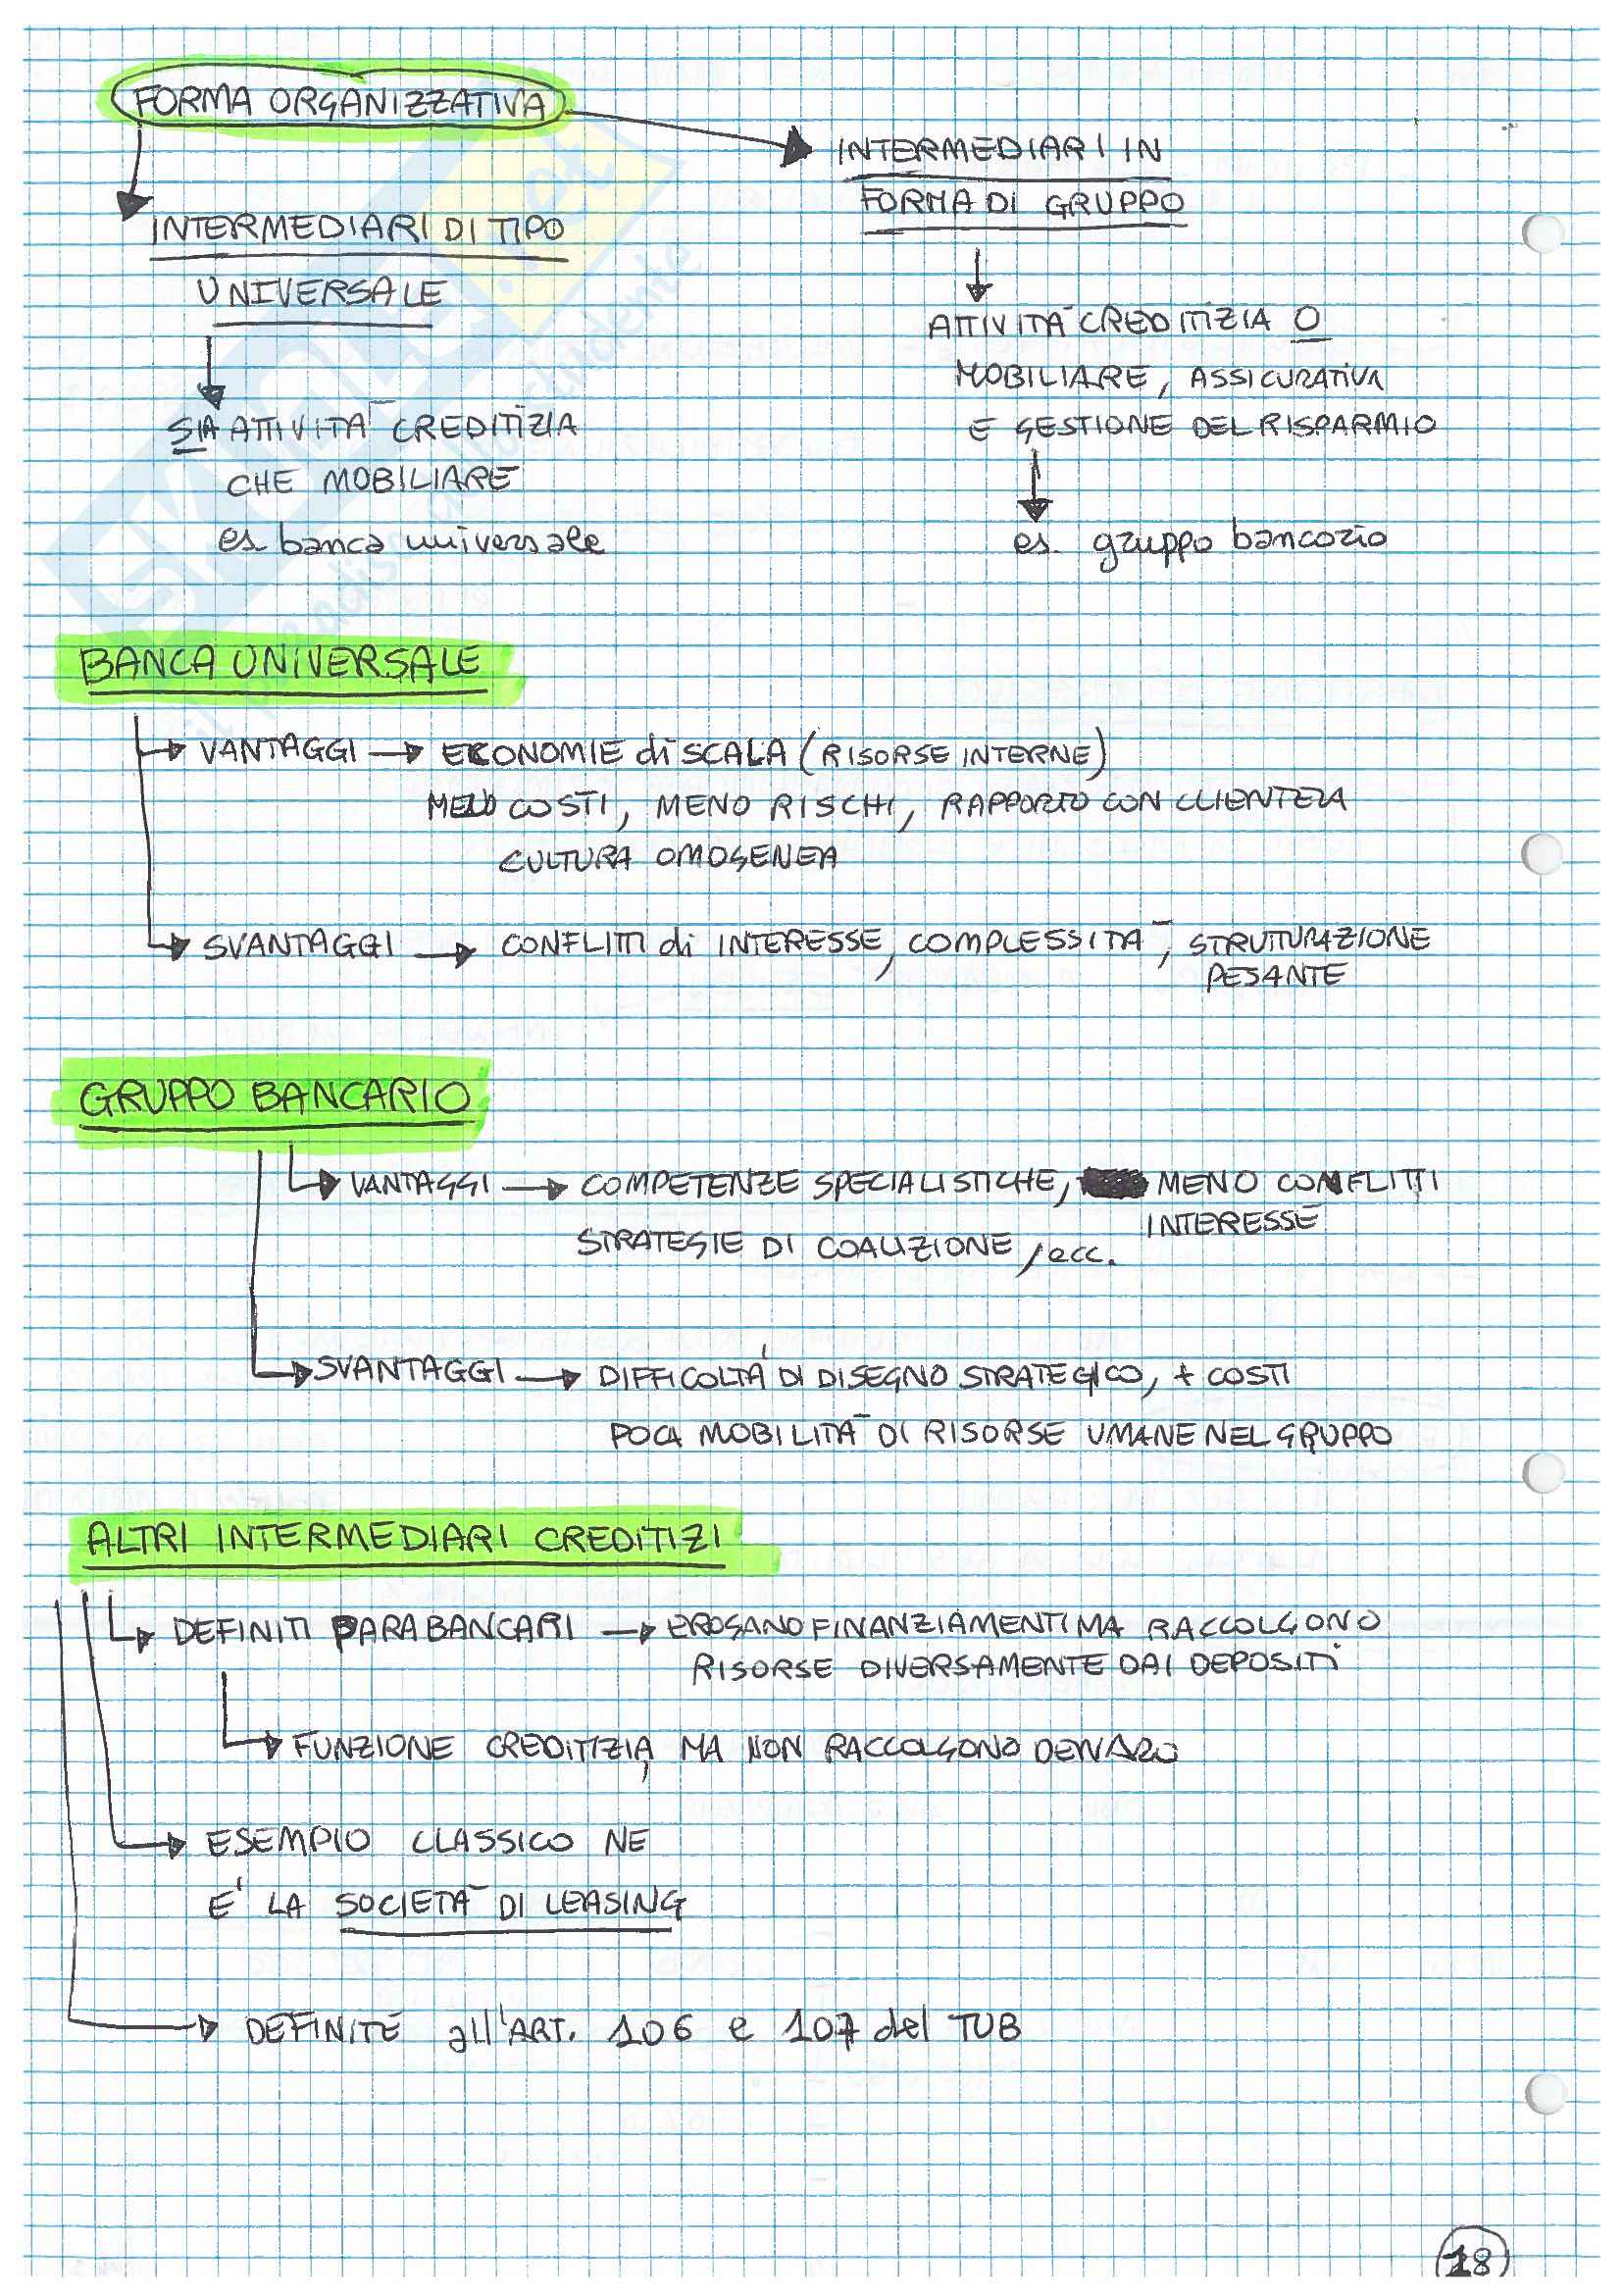 FORMA ORGANIZZATIVA
INTERMEDIARI IN
FORMA DI GRUPPO
INTERMEDIARI DI TIPO
UNIVERSALE
ATTIVITÀ CREDITIZIA O
MOBILIARE, ASSICURATIVA
E GESTIONE DEL RISPARMIO
SIA ATTIVITÀ CREDITIZIA
CHE MOBILIARE
es. banca universale
es. gruppo bancario
BANCA UNIVERSALE
VANTAGGI → ECONOMIE di SCALA (RISORSE INTERNE)
MENO COSTI, MENO RISCHI, RAPPORTO CON CLIENTELA
CULTURA OMOGENEA
SVANTAGGI → CONFLITTI di INTERESSE, COMPLESSITÀ, STRUTTURAZIONE
PESANTE
GRUPPO BANCARIO
VANTAGGI → COMPETENZE SPECIALISTICHE, MENO CONFLITTI
INTERESSE
STRATEGIE DI COALIZIONE, ecc.
SVANTAGGI → DIFFICOLTÁ DI DISEGNO STRATEGICO, + COSTI
POCA MOBILITÀ DI RISORSE UMANE NEL GRUPPO
ALTRI INTERMEDIARI CREDITIZI
DEFINITI PARABANCARI → EROGANO FINANZIAMENTI MA RACCOLGONO
RISORSE DIVERSAMENTE DAI DEPOSITI
FUNZIONE CREDITIZIA, MA NON RACCOLGONO DENARO
ESEMPIO CLASSICO NE
E' LA SOCIETÀ DI LEASING
DEFINITE all'ART. 106 e 107 del TUB
18